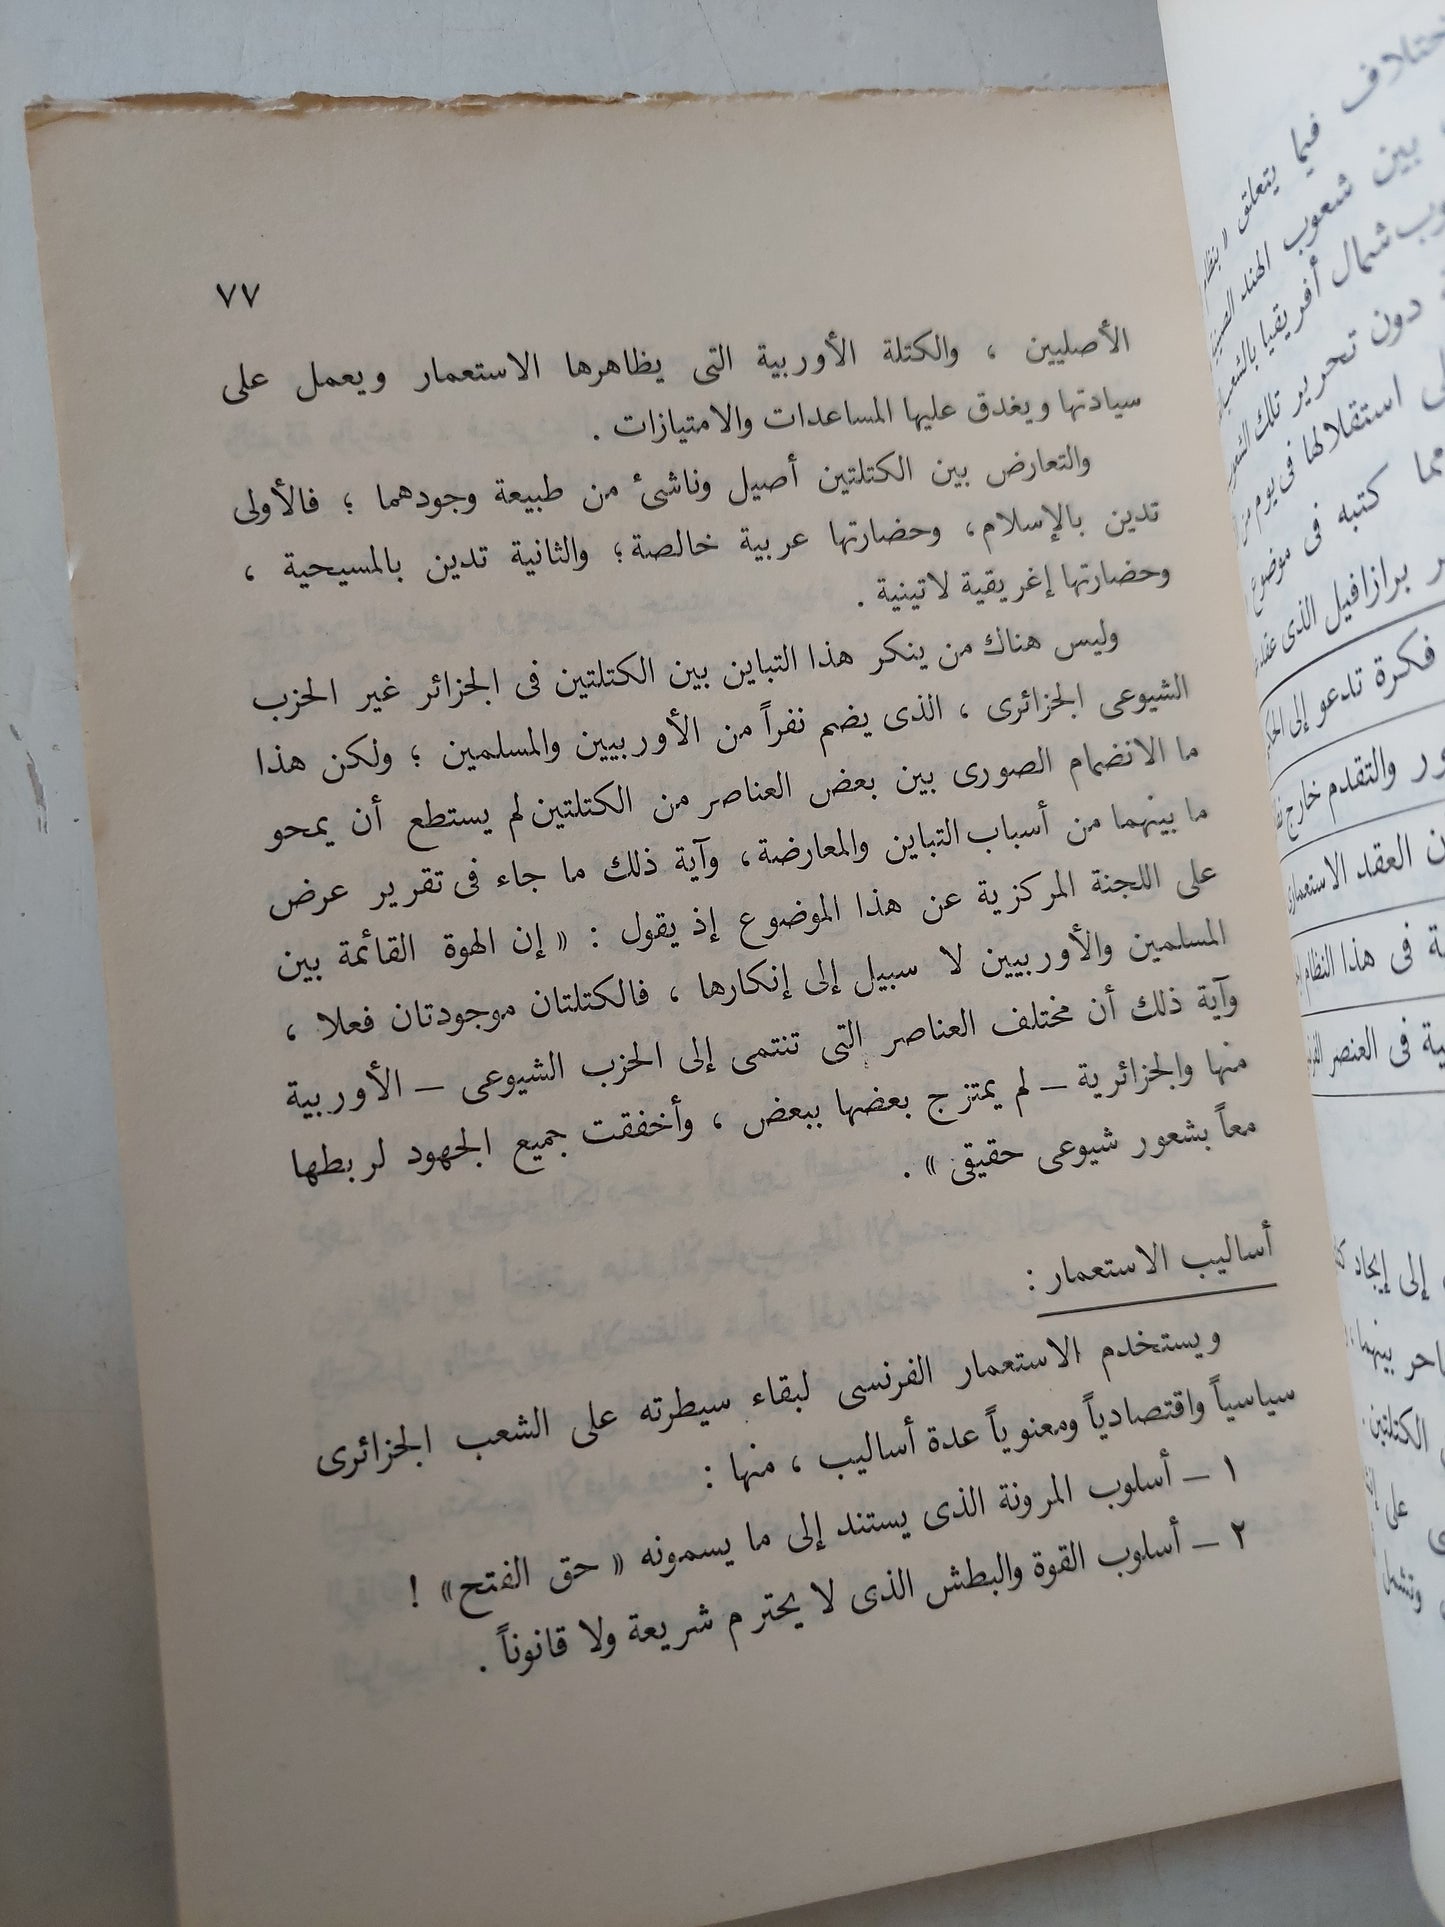 ٧٧
الأصليين ، والكتلة الأوربية التى يظاهرها الاستعمار ويعمل على
سيادتها ويغدق عليها المساعدات والامتيازات .
والتعارض بين الكتلتين أصيل وناشئ من طبيعة وجودهما ؛ فالأولى
تدين بالإسلام ، وحضارتها عربية خالصة ؛ والثانية تدين بالمسيحية ،
وحضارتها إغريقية لاتينية .
وليس هناك من ينكر هذا التباين بين الكتلتين فى الجزائر غير الحزب
الشيوعى الجزائرى ، الذى يضم نفراً من الأوربيين والمسلمين ؛ ولكن هذا
ما الانضمام الصورى بين بعض العناصر من الكتلتين لم يستطع أن يمحو
ما بينهما من أسباب التباين والمعارضة ، وآية ذلك ما جاء فى تقرير عرض
على اللجنة المركزية عن هذا الموضوع إذ يقول : « إن الهوة القائمة بين
المسلمين والأوربيين لا سبيل إلى إنكارها ، فالكتلتان موجودتان فعلا ،
وآية ذلك أن مختلف العناصر التى تنتمى إلى الحزب الشيوعى – الأوربية
منها والجزائرية – لم يمتزج بعضها ببعض ، وأخفقت جميع الجهود لربطها
معاً بشعور شيوعى حقيقى » .
أساليب الاستعمار :
ويستخدم الاستعمار الفرنسى لبقاء سيطرته على الشعب الجزائرى
سياسياً واقتصادياً ومعنوياً عدة أساليب ، منها :
١ – أسلوب المرونة الذى يستند إلى ما يسمونه « حق الفتح » !
٢ – أسلوب القوة والبطش الذى لا يحترم شريعة ولا قانوناً .
فيما يتعلق
بين شعوب الهند الصينية
شمال أفريقيا
دون تحرير تلك
استقلالها فى يوم من
مما كتبه فى موضوع
برازافيل الذى
فكرة تدعو إلى
والتقدم خارج
العقد
فى هذا النظام
فى العنصر
إلى إيجاد
بينهما
الكتلتين
على